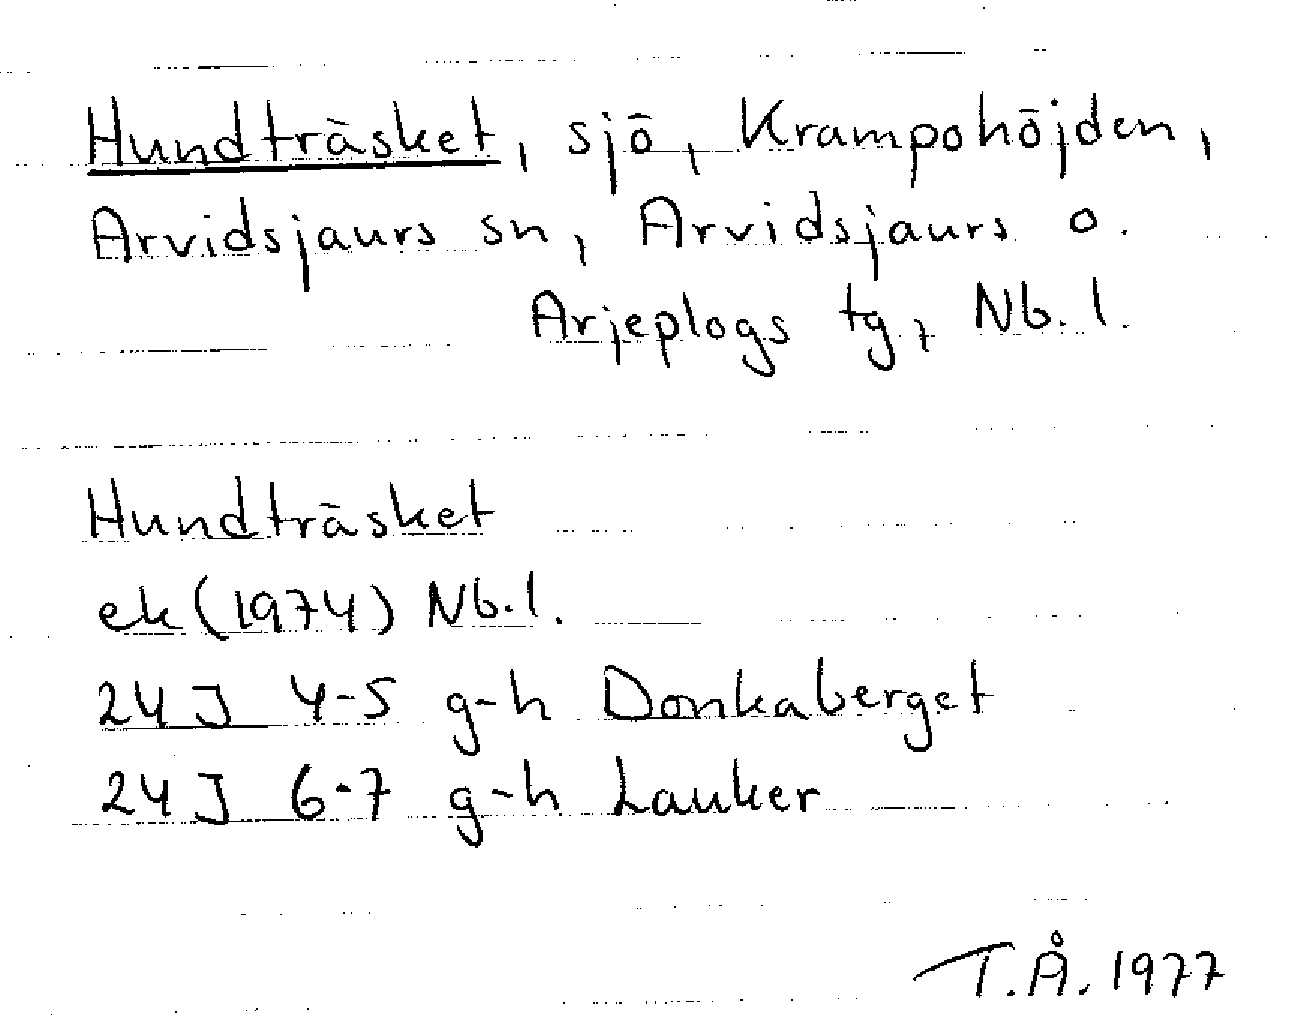 Hundträsket, sjö, Krampohöjden,
Arvidsjaurs sn, Arvidsjaurs o.
Arjeplogs tg, Nb. l.
Hundträsket
ek (1974) Nb. l.
24 J 4-5 g-h Donkaberget
24 J 6-7 g-h Lauker
T.Å. 1977